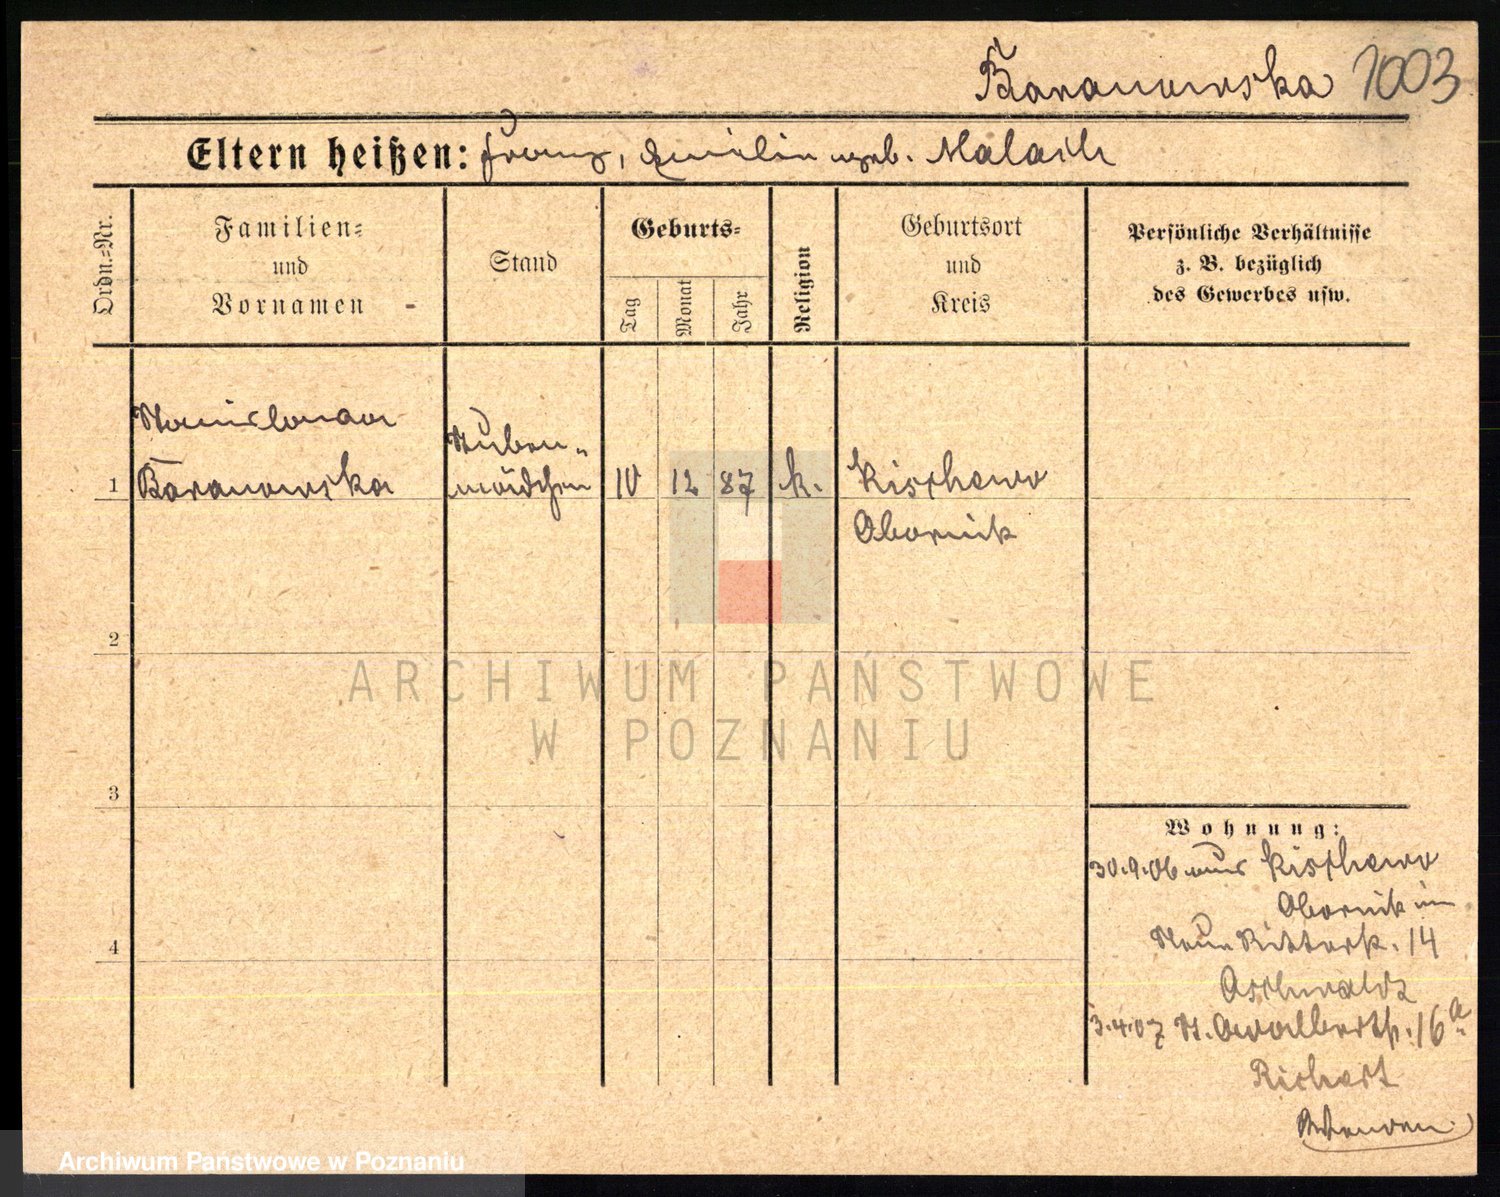 Baranowska 1003
Eltern heißen: Franz, Emilie geb. Malach
Ordn.-Nr.
Familien-
und
Vornamen
Stand
Geburts-
Tag
Monat
Jahr
Religion
Geburtsort
und
Kreis
Persönliche Verhältnisse
z. B. bezüglich
des Gewerbes usw.
Stanislawa
Stuben-
1 Baranowska mädchen 10 12 87 k. Kischewo
Obornik
2
3
4
ARCHIWUM PAŃSTWOWE
W POZNANIU
Wohnung:
30.9.06 aus Kischewo
Obornik in
Neue Ritterstr. 14
3.4.07 St. Adalbertstr. 16a
Archiwum Państwowe w Poznaniu